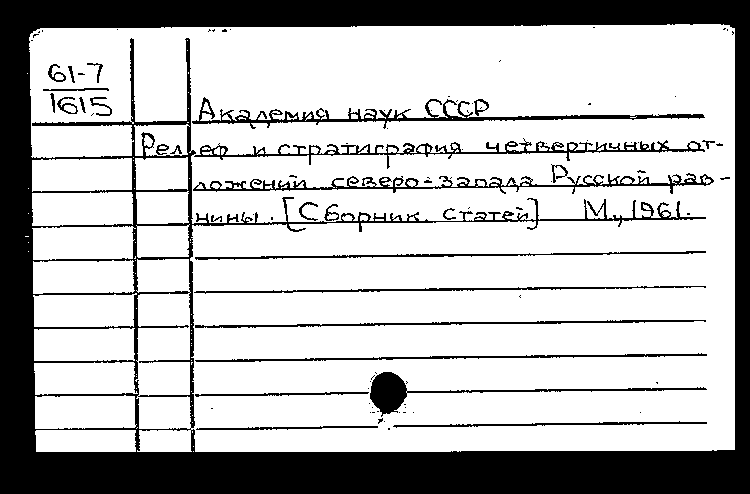 61-7
1615
Академия наук СССР
Рельеф и стратиграфия четвертичных от-
ложений северо-запада Русской рав-
нины. [Сборник статей] М., 1961.